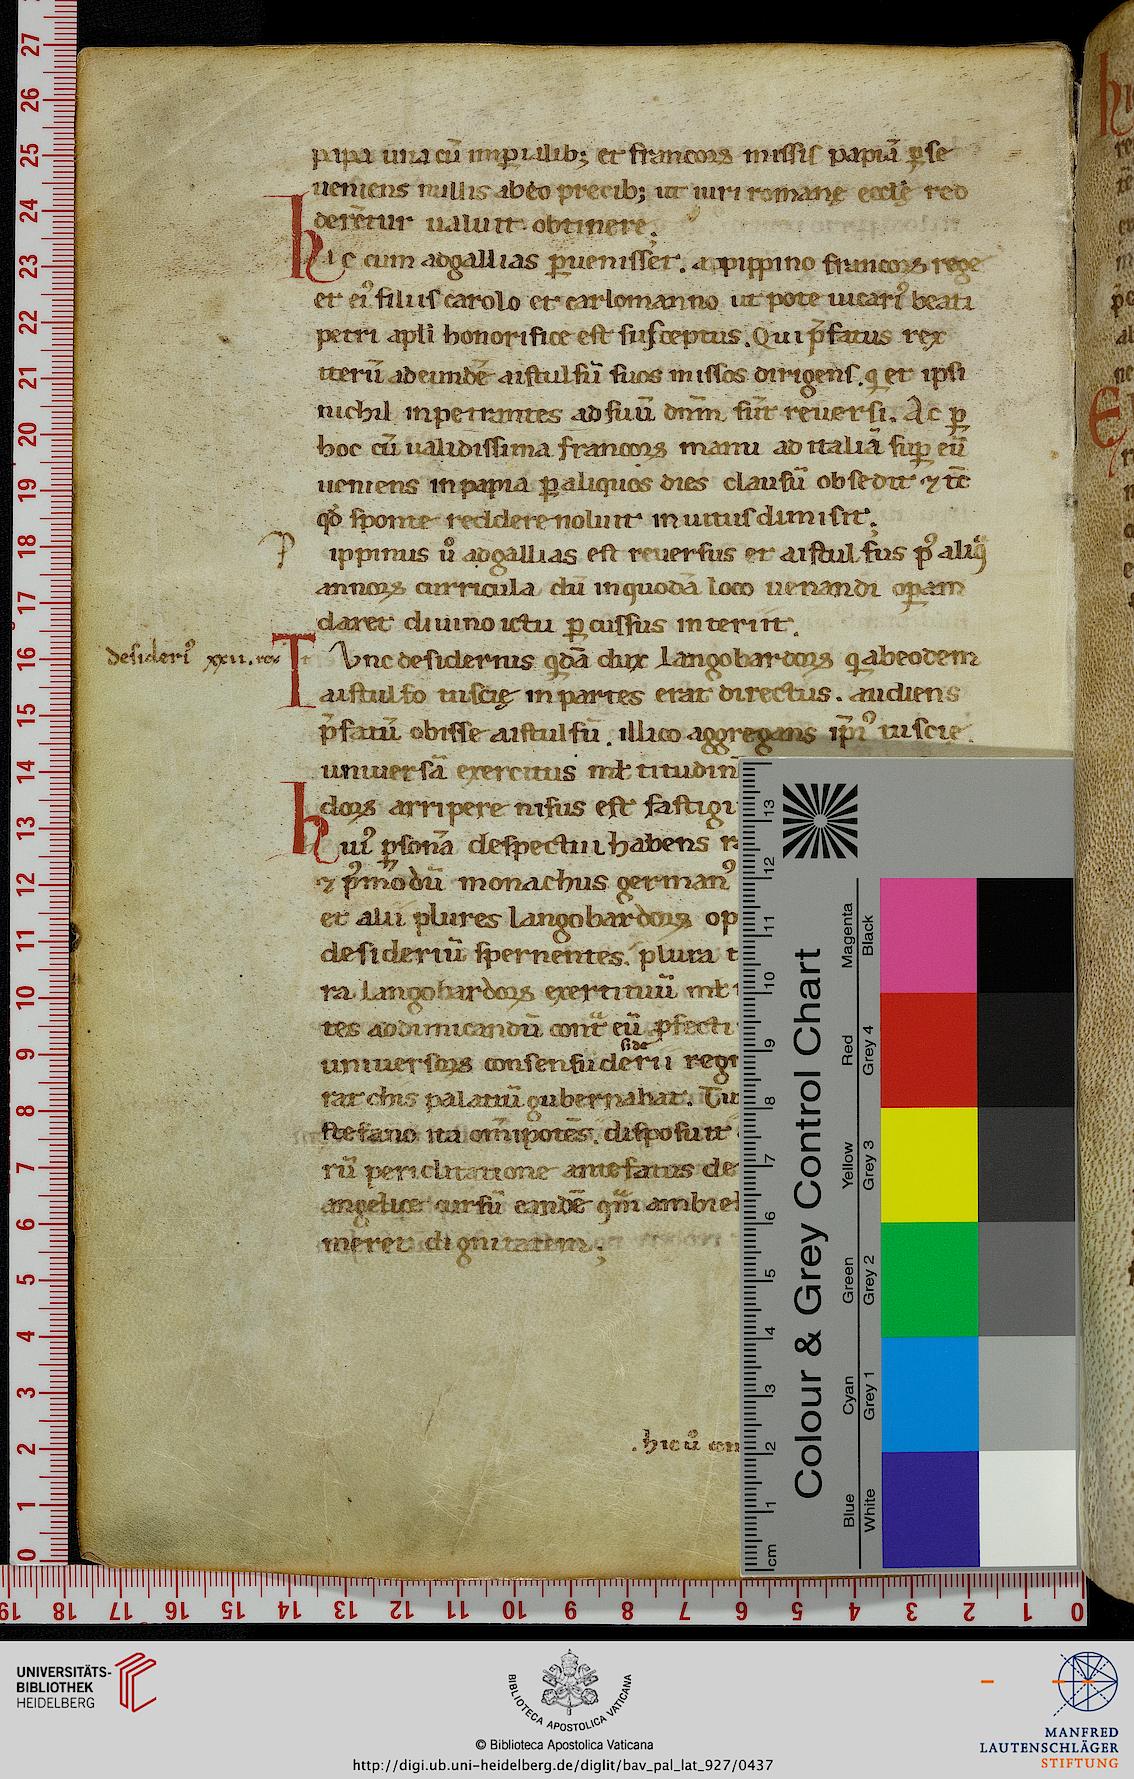 papa una cū imp̄ialib; et francoꝝ missis papiā ꝑse
ueniens nullis abeo precib; ut iuri romanę ecclę red
derētur ualuit obtinere;
hic cum adgallias ꝑuenisset. appippino francoꝝ rege
et eiꝰ filiis carolo et carlomanno ut pote uicariꝰ beati
petri apli honorifice est susceptus. Qui p̄fatus rex
iterū adeundē aistulfū suos missos dirigens. q et ipsi
nichil inpetrantes ad suū dnm̄ sūt reuersi. Ac ꝑ
hoc cū ualidissima francoꝝ manu ad italiā suꝑ eū
ueniens inpapia ꝑaliquos dies clausū obsedit ⁊ tc̄
qd̄ sponte reddere noluit inuitus dimisit;
Pippinus ů adgallias est reuersus et aistulfus pꝰ aliq̄
annoꝝ curricula dū inquodā loco uenandi oꝑam
daret diuino ictu ꝑcussus interiit.
desideriꝰ xxii. rex
Tunc desiderius qdā dux langobardoꝝ q abeodem
aistulfo tuscię in partes erat directus. audiens
p̄fatū obisse aistulfū. illico aggregans ipiꝰ tuscię
uniuersā exercitus mł titudin
doꝝ arripere nisus est fastigi
huiꝰ ꝑsonā despectui habens r
⁊ p̄modū monachus germanꝰ
et alii plures langobardoꝝ op
desideriū spernentes. plura t
ra langobardoꝝ exercituū mł
tes addimicandū cont̄ eū ꝓfecti
side
uniuersoꝝ consensu derii regn
rarchis palatiū gubernabat. Tu
stefano ita om̄ipotēs. disposuit
rū periclitatione antefatus de
angelice cursū eandē qm̄ ambieb
meret dignitatem;
. hic ů
Colour & Grey Control Chart
Magenta
Black
Red
Grey 4
Yellow
Grey 3
Green
Grey 2
Cyan
Grey 1
Blue
White
cm
UNIVERSITÄTS-
BIBLIOTHEK
HEIDELBERG
BIBLIOTECA APOSTOLICA VATICANA
© Biblioteca Apostolica Vaticana
http://digi.ub.uni-heidelberg.de/diglit/bav_pal_lat_927/0437
MANFRED
LAUTENSCHLÄGER
STIFTUNG